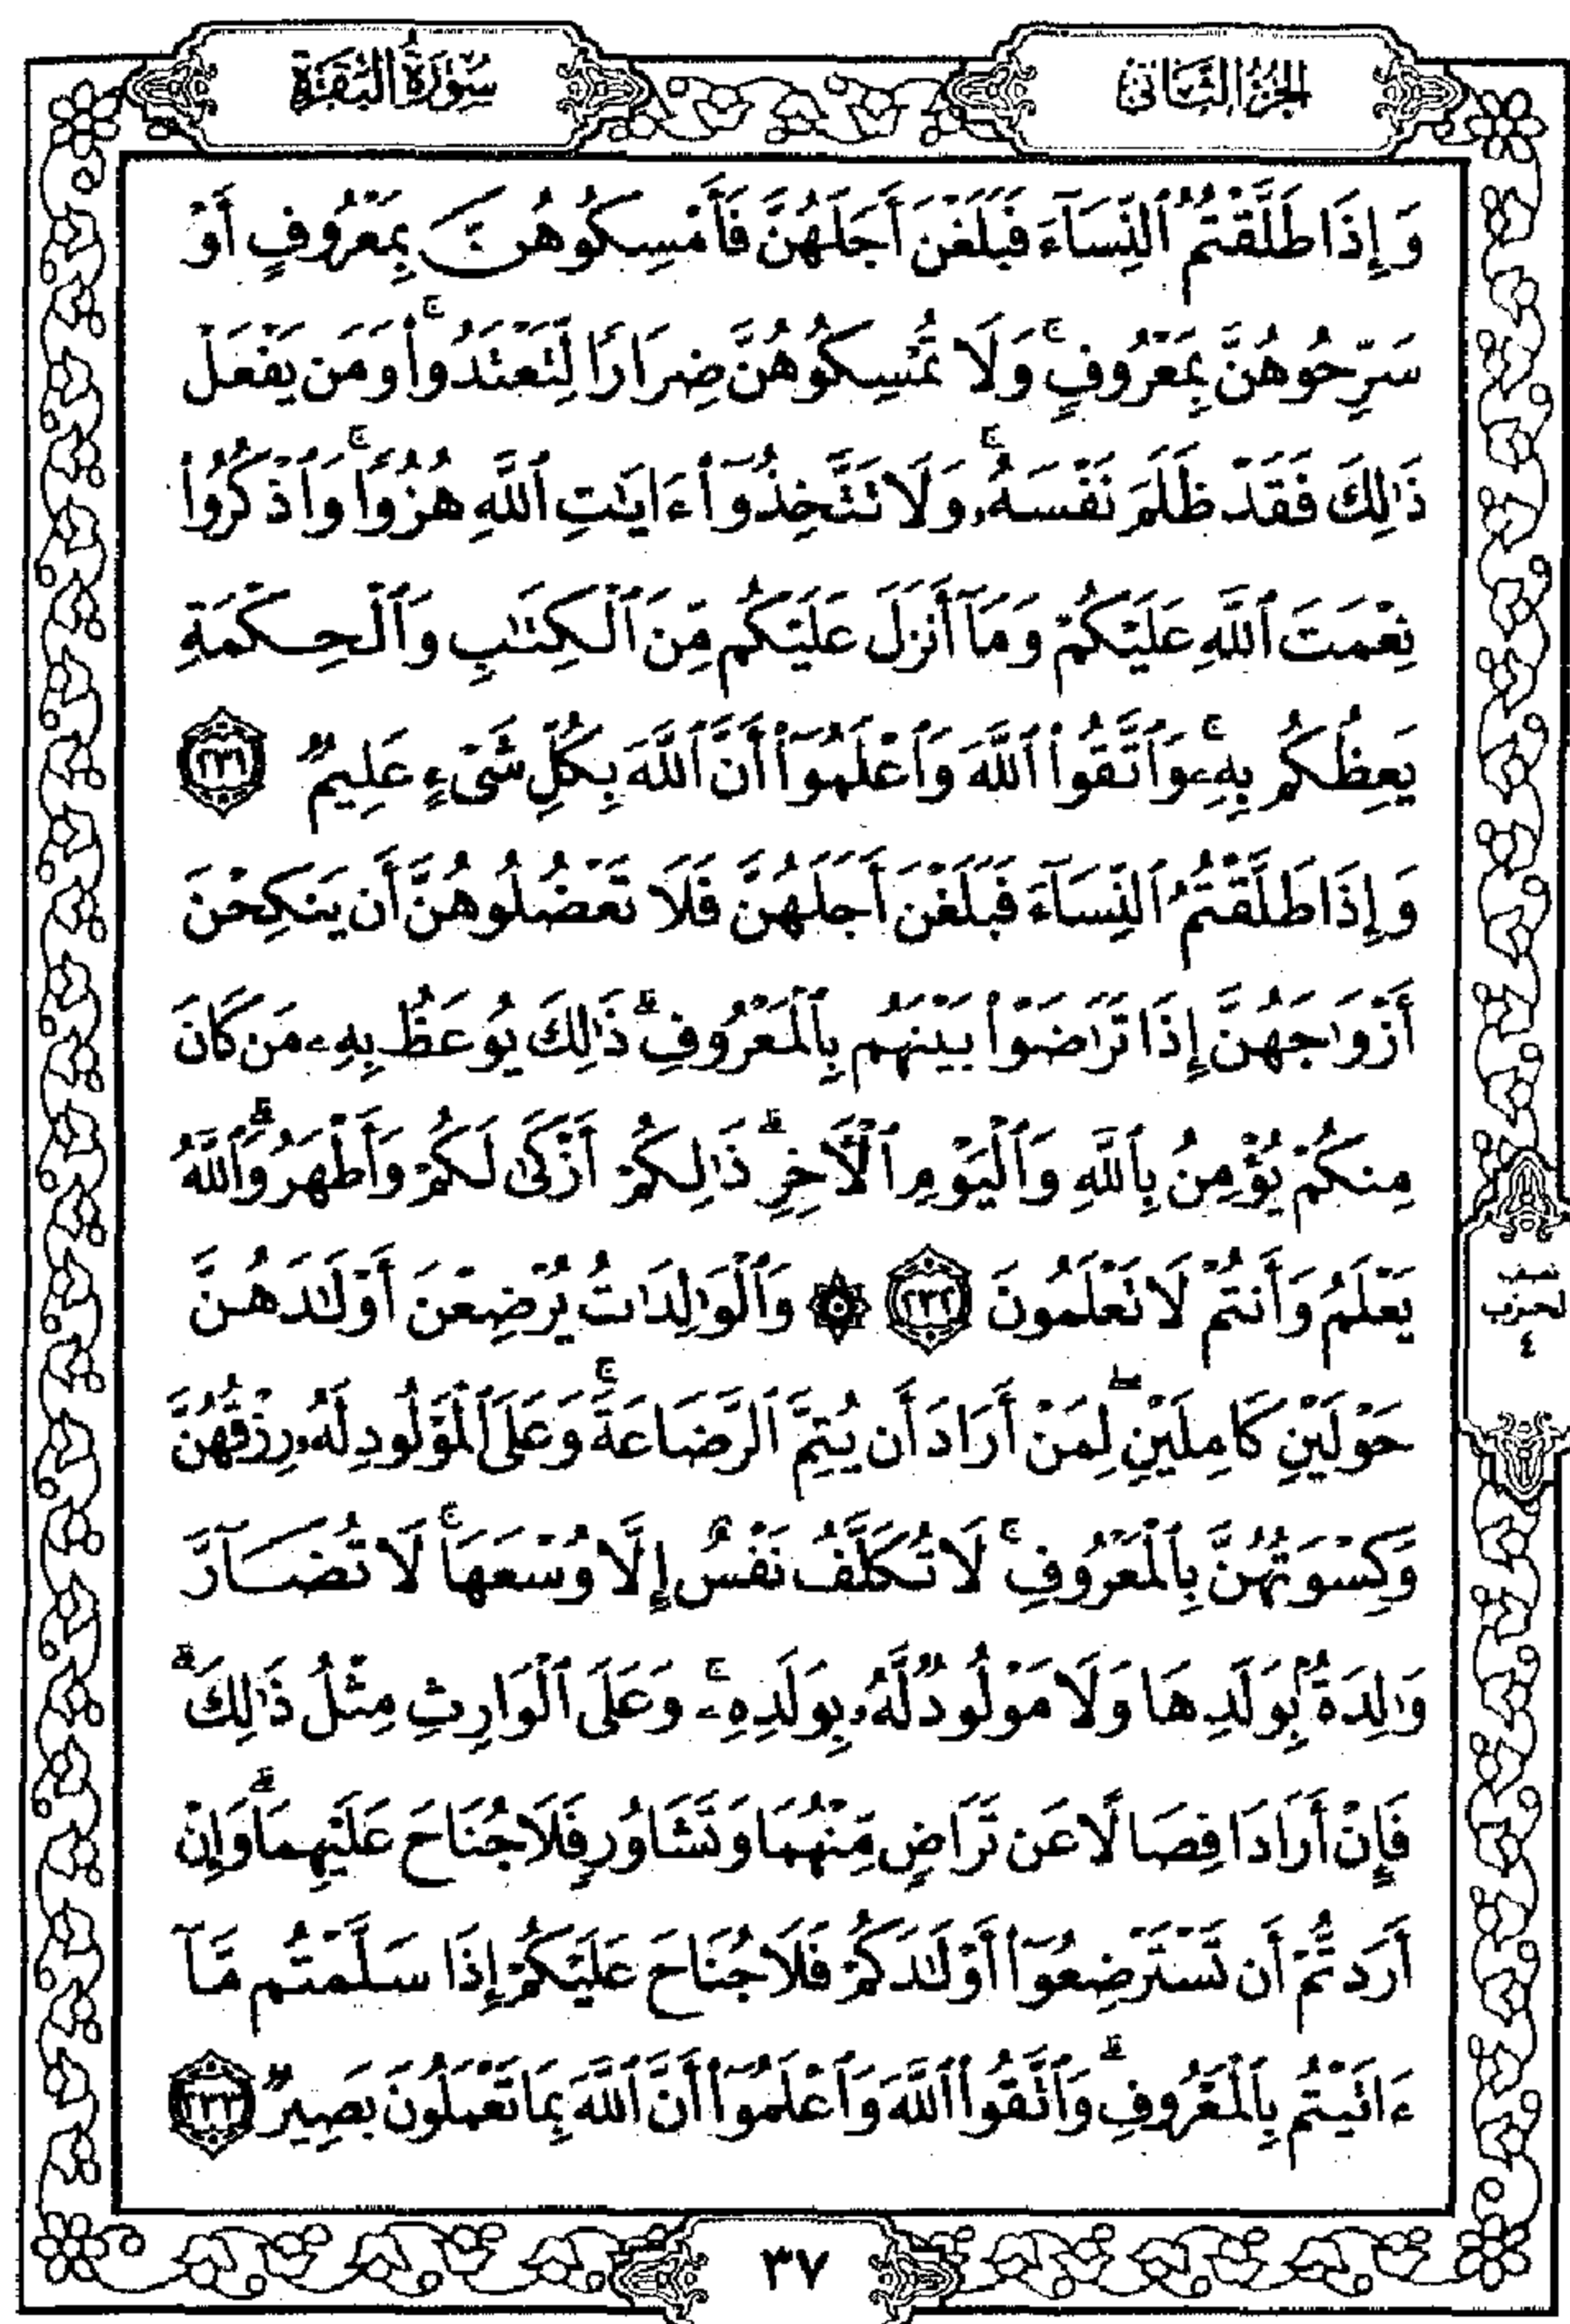 الجزء الثاني
سورة البقرة
وَإِذَا طَلَّقْتُمُ ٱلنِّسَآءَ فَبَلَغْنَ أَجَلَهُنَّ فَأَمْسِكُوهُنَّ بِمَعْرُوفٍ أَوْ
سَرِّحُوهُنَّ بِمَعْرُوفٍ ۚ وَلَا تُمْسِكُوهُنَّ ضِرَارًا لِّتَعْتَدُوا۟ ۚ وَمَن يَفْعَلْ
ذَٰلِكَ فَقَدْ ظَلَمَ نَفْسَهُۥ ۚ وَلَا تَتَّخِذُوٓا۟ ءَايَٰتِ ٱللَّهِ هُزُوًا ۚ وَٱذْكُرُوا۟
نِعْمَتَ ٱللَّهِ عَلَيْكُمْ وَمَآ أَنزَلَ عَلَيْكُم مِّنَ ٱلْكِتَٰبِ وَٱلْحِكْمَةِ
يَعِظُكُم بِهِۦ ۚ وَٱتَّقُوا۟ ٱللَّهَ وَٱعْلَمُوٓا۟ أَنَّ ٱللَّهَ بِكُلِّ شَىْءٍ عَلِيمٌ ٢٣١
وَإِذَا طَلَّقْتُمُ ٱلنِّسَآءَ فَبَلَغْنَ أَجَلَهُنَّ فَلَا تَعْضُلُوهُنَّ أَن يَنكِحْنَ
أَزْوَٰجَهُنَّ إِذَا تَرَٰضَوْا۟ بَيْنَهُم بِٱلْمَعْرُوفِ ۗ ذَٰلِكَ يُوعَظُ بِهِۦ مَن كَانَ
مِنكُمْ يُؤْمِنُ بِٱللَّهِ وَٱلْيَوْمِ ٱلْـَٔاخِرِ ۗ ذَٰلِكُمْ أَزْكَىٰ لَكُمْ وَأَطْهَرُ ۗ وَٱللَّهُ
يَعْلَمُ وَأَنتُمْ لَا تَعْلَمُونَ ٢٣٢ ۞ وَٱلْوَٰلِدَٰتُ يُرْضِعْنَ أَوْلَٰدَهُنَّ
نصف
الحزب
٤
حَوْلَيْنِ كَامِلَيْنِ ۖ لِمَنْ أَرَادَ أَن يُتِمَّ ٱلرَّضَاعَةَ ۚ وَعَلَى ٱلْمَوْلُودِ لَهُۥ رِزْقُهُنَّ
وَكِسْوَتُهُنَّ بِٱلْمَعْرُوفِ ۚ لَا تُكَلَّفُ نَفْسٌ إِلَّا وُسْعَهَا ۚ لَا تُضَآرَّ
وَٰلِدَةٌۢ بِوَلَدِهَا وَلَا مَوْلُودٌ لَّهُۥ بِوَلَدِهِۦ ۚ وَعَلَى ٱلْوَارِثِ مِثْلُ ذَٰلِكَ ۗ
فَإِنْ أَرَادَا فِصَالًا عَن تَرَاضٍ مِّنْهُمَا وَتَشَاوُرٍ فَلَا جُنَاحَ عَلَيْهِمَا ۗ وَإِنْ
أَرَدتُّمْ أَن تَسْتَرْضِعُوٓا۟ أَوْلَٰدَكُمْ فَلَا جُنَاحَ عَلَيْكُمْ إِذَا سَلَّمْتُم مَّآ
ءَاتَيْتُم بِٱلْمَعْرُوفِ ۗ وَٱتَّقُوا۟ ٱللَّهَ وَٱعْلَمُوٓا۟ أَنَّ ٱللَّهَ بِمَا تَعْمَلُونَ بَصِيرٌ ٢٣٣
٣٧